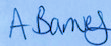 A Barnes